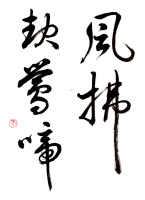 風拂
鶯啼